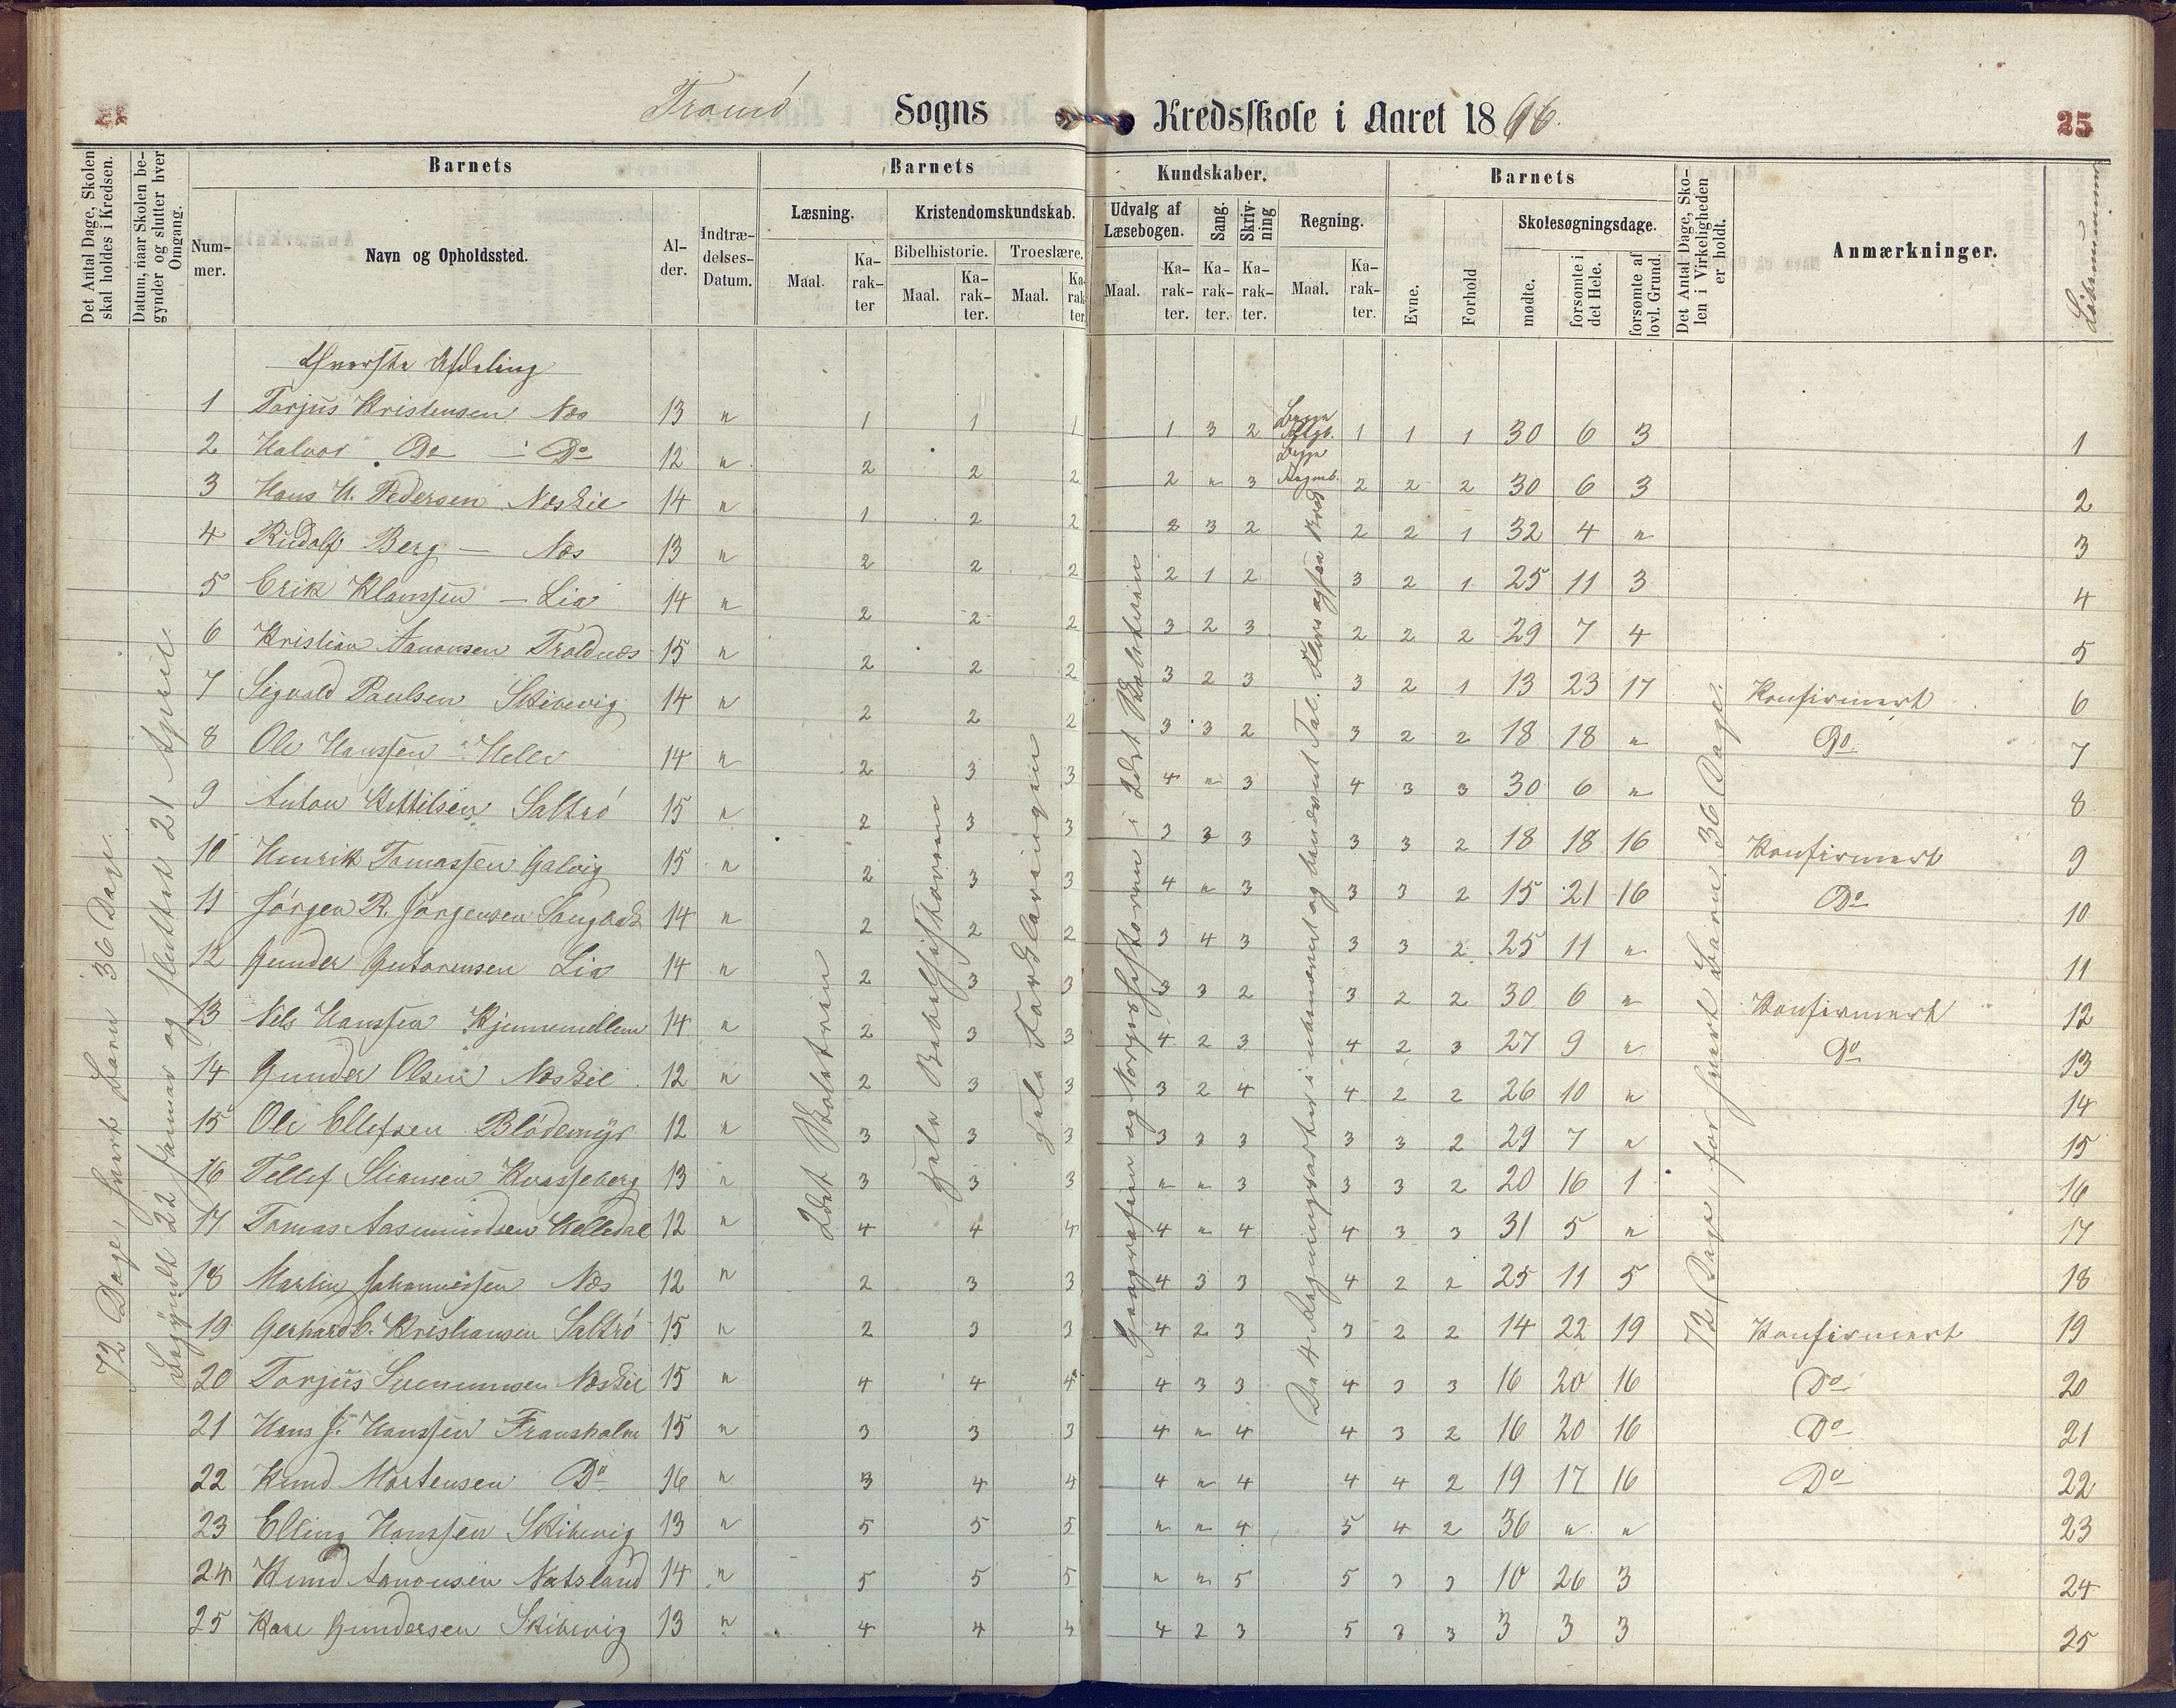 Tromö Sogns Kredsskole i Aaret 1866.
25
Det Antal Dage, Skolen skal holdes i Kredsen.
Datum, naar Skolen begynder og slutter hver Omgang.
Barnets
Nummer.
Navn og Opholdssted.
Alder.
Indtrædelses-Datum.
Barnets Kundskaber.
Læsning.
Maal.
Karakter
Kristendomskundskab.
Bibelhistorie.
Maal.
Karakter.
Troeslære.
Maal.
Karakter.
Udvalg af Læsebogen.
Maal.
Karakter.
Sang.
Karakter.
Skrivning
Karakter.
Regning.
Maal.
Karakter.
Barnets
Evne.
Forhold
Skolesøgningsdage.
mødte.
forsømte i det Hele.
forsømte af lovl. Grund.
Det Antal Dage, Skolen i Virkeligheden er holdt.
Anmærkninger.
Löbenummer
72 Dage, hvert Barn 36 Dage.
Begyndt 22 Januar og sluttet 21 April.
2det Skoletrin
hele Bibelhistorien
hele Forklaringen
Geografien og Norgeshistorien i 2det Skoletrin
De 4 Regningsarter i ubenævnt og benævnt Tal.
72 Dage, for hvert Barn 36 Dage.
Øverste Afdeling
1 Torjus Kristensen Næs 13 " 1 1 1 1 3 2 1 1 1 30 6 3 1
2 Halvor Do - Do 12 " 2 2 2 2 " 3 2 2 2 30 6 3 2
3 Hans H. Pedersen Næskil 14 " 1 2 2 2 3 2 2 2 1 32 4 " 3
4 Rudolf Berg - Næs 13 " 2 2 2 2 1 2 3 2 1 25 11 3 4
5 Erik Klanssen - Lia 14 " 2 2 2 3 2 3 2 2 2 29 7 4 5
6 Kristian Aanonsen Troldnæs 15 " 2 2 2 3 2 3 3 2 1 13 23 17 Konfirmert 6
7 Sigvald Paulsen Skibevig 14 " 2 2 2 3 3 2 3 2 2 18 18 " Do 7
8 Ole Hanssen Helle 14 " 2 3 3 4 " 3 4 3 3 30 6 " 8
9 Anton Kittilsen Saltrö 15 " 2 3 3 3 3 3 3 3 2 18 18 16 Konfirmert 9
10 Henrik Tomassen Galvig 15 " 2 3 3 4 " 3 3 3 2 15 21 16 Do 10
11 Jörgen R. Jörgensen 14 " 2 2 2 3 4 3 3 3 2 25 11 " 11
12 Gunder Gutormsen Lia 14 " 2 3 3 3 3 2 3 2 2 30 6 " Konfirmert 12
13 Nils Hanssen 14 " 2 3 3 4 2 3 4 2 3 27 9 " Do 13
14 Gunder Olsen Næskil 12 " 2 3 3 3 2 4 4 2 2 26 10 " 14
15 Ole Ellefsen Blödemyr 12 " 3 3 3 3 3 3 3 3 2 29 7 " 15
16 Tellef Stiansen 13 " 3 3 3 " " 3 3 3 2 20 16 1 16
17 Tomas Aasmundsen Helledal 12 " 4 4 4 4 " 4 4 3 3 31 5 " 17
18 Martin Johannessen Næs 12 " 2 3 3 4 3 3 4 2 2 25 11 5 18
19 Gerhard C. Kristiansen Saltrö 15 " 2 3 3 4 2 3 3 2 2 14 22 19 Konfirmert 19
20 Torjus Svenumsen Næskil 15 " 4 4 4 4 3 3 4 3 3 16 20 16 Do 20
21 Hans J. Hanssen Fransholm 15 " 3 3 3 4 " 4 4 3 2 16 20 16 Do 21
22 Knud Mortensen Do 16 " 3 4 4 4 " 4 4 4 2 19 17 16 Do 22
23 Elling Hanssen Skibevig 13 " 5 5 5 " " 4 5 4 2 36 " " 23
24 Knud Aanonsen 14 " 5 5 5 " " 5 5 3 3 10 26 3 24
25 Kare Gundersen Skibevig 13 " 4 4 4 4 2 3 5 3 3 3 3 3 25